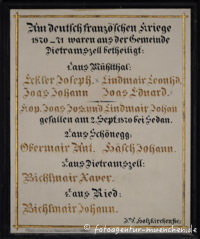 Am deutsch französischen Kriege
1870-71 waren aus der Gemeinde
Dietramszell betheiligt:
1 aus Mühlthal:
Eckler Joseph. Lindmair Leonhd.
Joas Johann Joas Eduard.
Kop. Joas Jos. und Lindmair Johan
gefallen am 2. Sept. 1870 bei Sedan.
2 aus Schönegg:
Obermair Ant. Hasch Johann.
1 aus Dietramszell:
Bichlmair Xaver.
1 aus Ried:
Bichlmair Johann.
© www.fotoagentur-muenchen.de